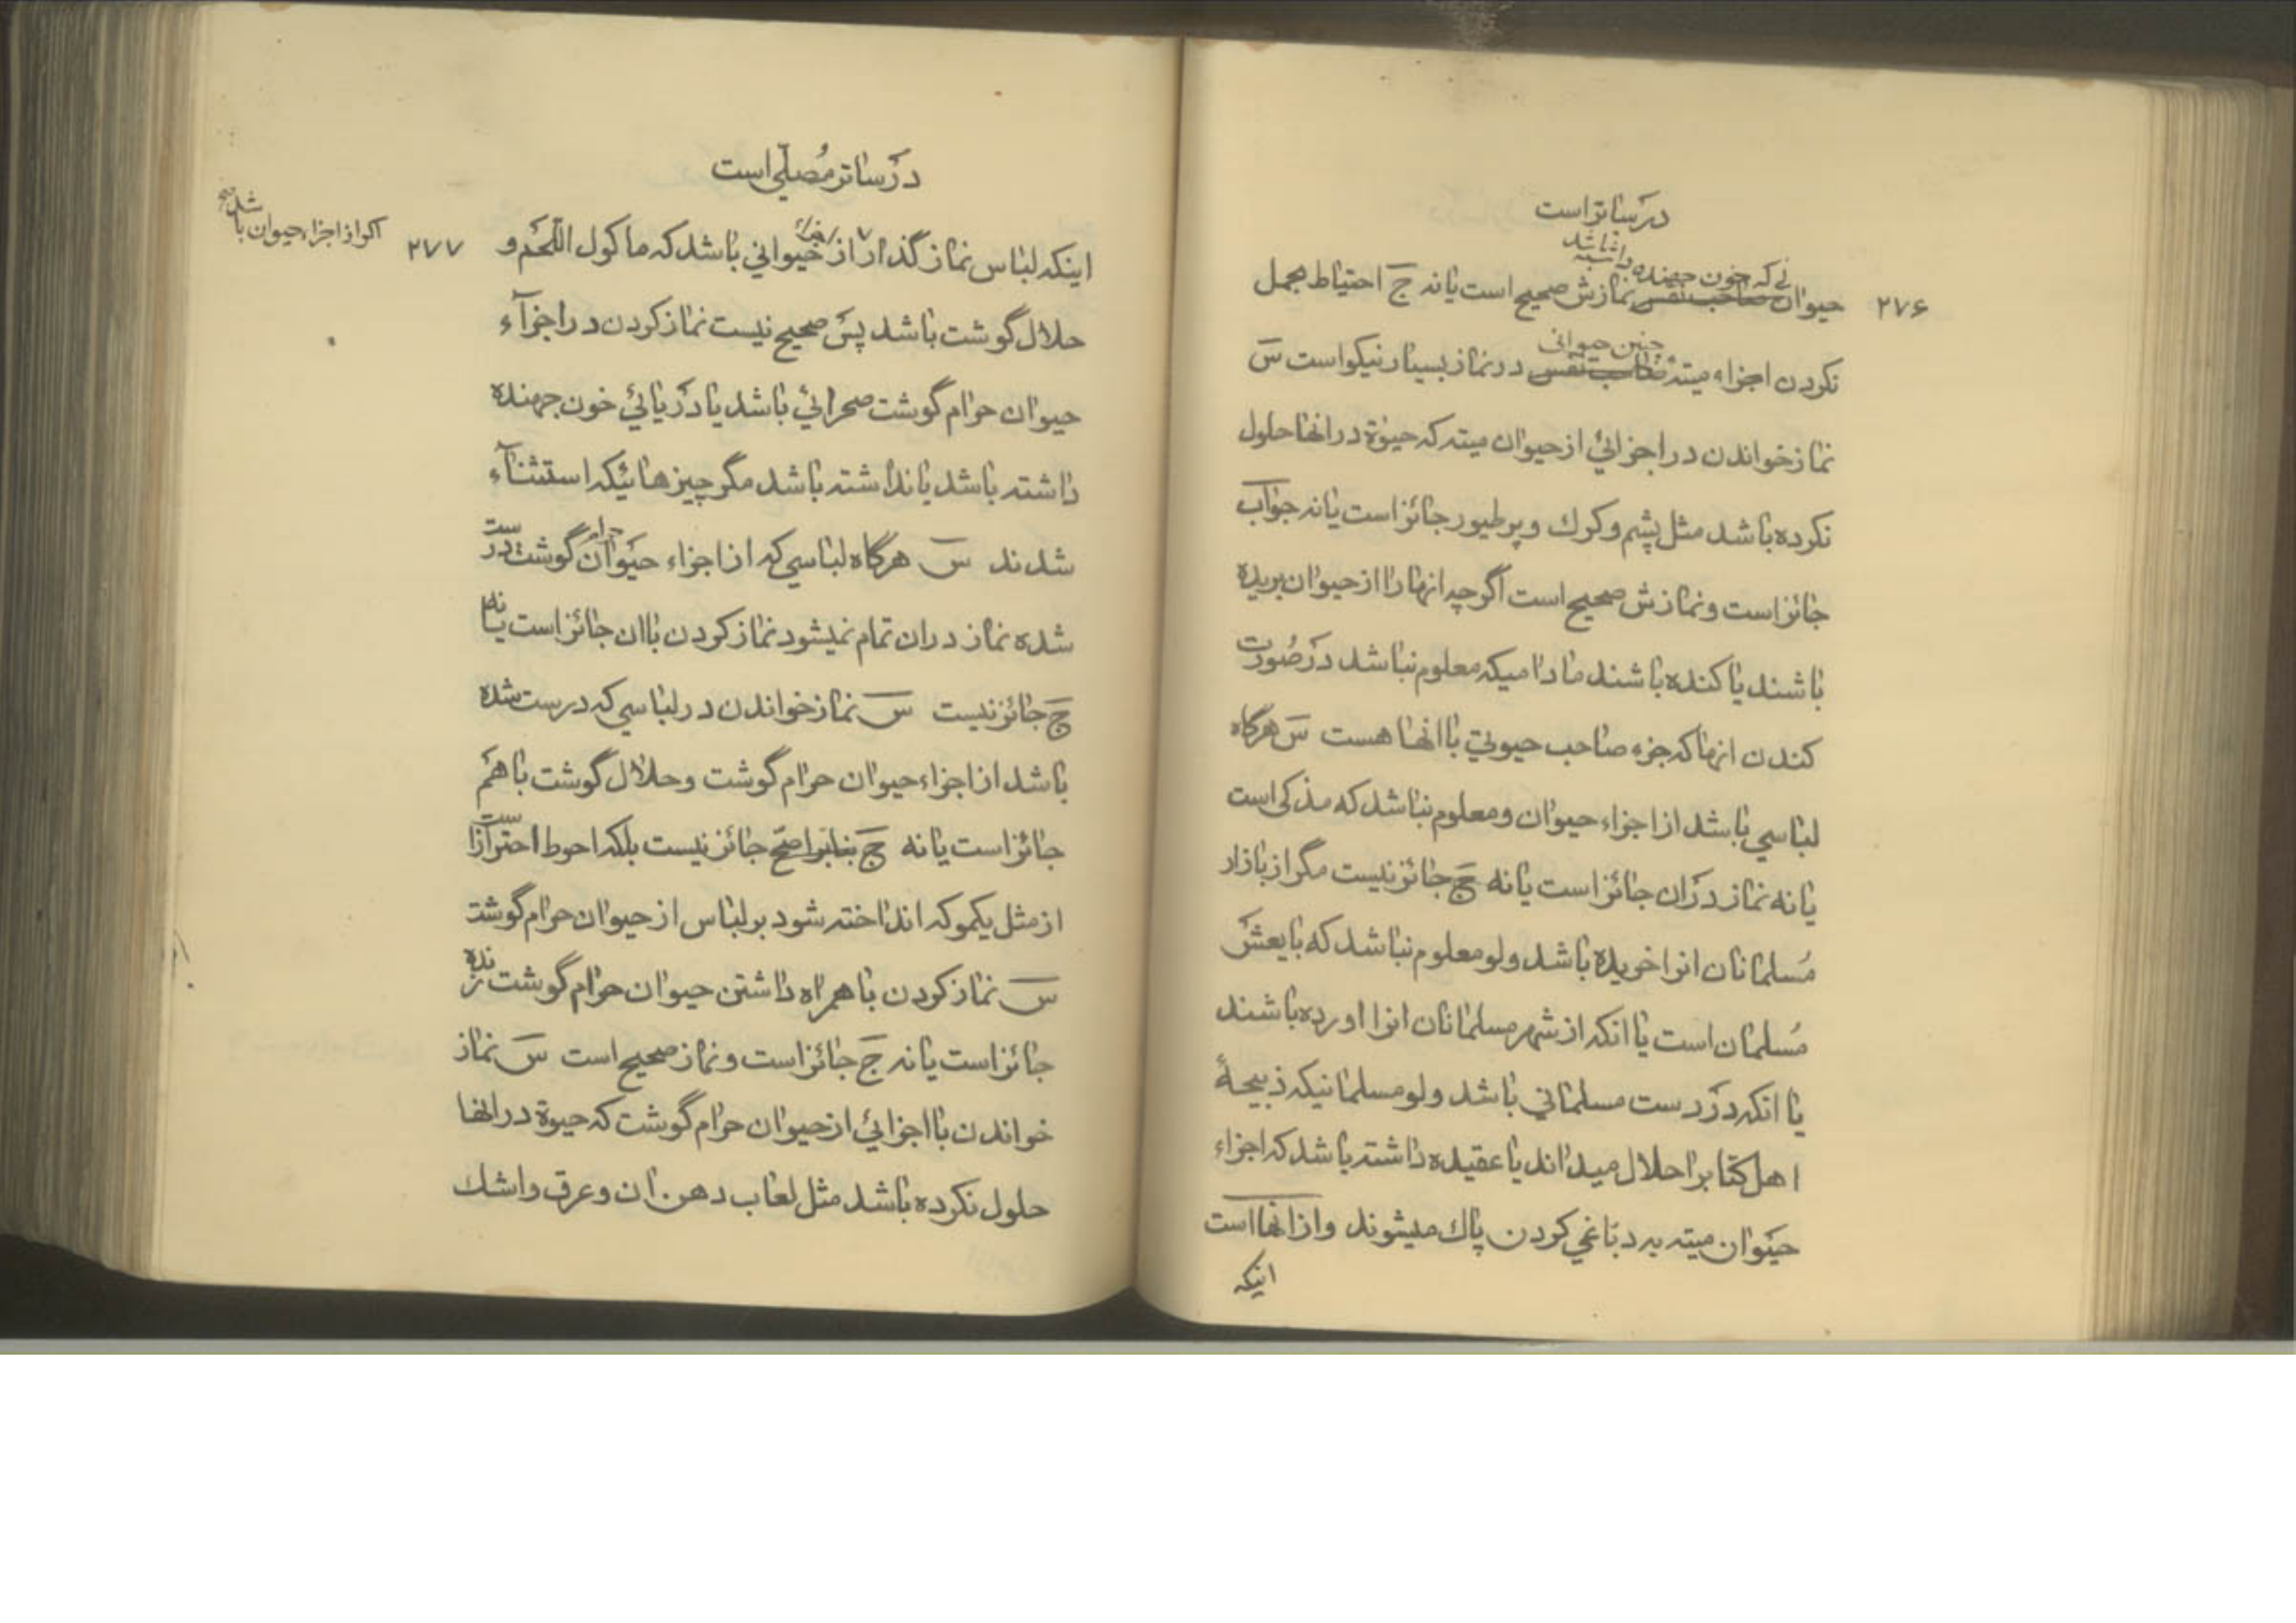 در ساتر است
۲۷۶
نے که خون جهنده داشته باشد
حیوان صاحب نفس نمازش صحیح است یا نه ج احتیاط بحمل
چنین حیوانی
نکردن اجزاء میته صاحب نفس در نماز بسیار نیکو است س
نماز خواندن در اجزائي از حیوان میته که حیوٰة در انها حلول
نکرده باشد مثل پشم و کرك و پر طیور جائز است یا نه جواب
جائز است و نمازش صحیح است اگر چه انها را از حیوان بریده
باشند یا کنده باشند مادامیکه معلوم نباشد در صورت
کندن انها که جزء صاحب حیوتي با انها هست س هرگاه
لباسي باشد از اجزاء حیوان و معلوم نباشد که مذکی است
یا نه نماز در ان جائز است یا نه ج جائز نیست مگر از بازار
مسلمانان انرا خریده باشد ولو معلوم نباشد که بایعش
مسلمان است یا انکه از شهر مسلمانان انرا اورده باشند
یا انکه در دست مسلماني باشد ولو مسلمانیکه ذبیحهٔ
اهل کتابرا حلال میداند یا عقیده داشته باشد که اجزاء
حیوان میته به دباغي کردن پاك میشوند و از انها است
اینکه
در ساتر مصلّي است
۲۷۷
اینکه لباس نماز گذار از حیواني باشد که ماکول اللحم و
اگر از اجزاء حیوان باشد صح
حلال گوشت باشد پس صحیح نیست نماز کردن در اجزآء
حیوان حرام گوشت صحرائي باشد یا دریائي خون جهنده
داشته باشد یا نداشته باشد مگر چیزهائیکه استثنآء
شدند س هرگاه لباسي که از اجزاء حیوان حرام گوشت درست
شده نماز در ان تمام نمیشود نماز کردن با ان جائز است یا نه
ج جائز نیست س نماز خواندن در لباسي که درست شده
باشد از اجزاء حیوان حرام گوشت و حلال گوشت با هم
جائز است یا نه ج بنابر اصحّ جائز نیست بلکه احوط احتراز است
از مثل یکمو که انداخته شود بر لباس از حیوان حرام گوشت
س نماز کردن با همراه داشتن حیوان حرام گوشت زنده
جائز است یا نه ج جائز است و نماز صحیح است س نماز
خواندن با اجزائي از حیوان حرام گوشت که حیوة در انها
حلول نکرده باشد مثل لعاب دهن ان و عرق و اشك